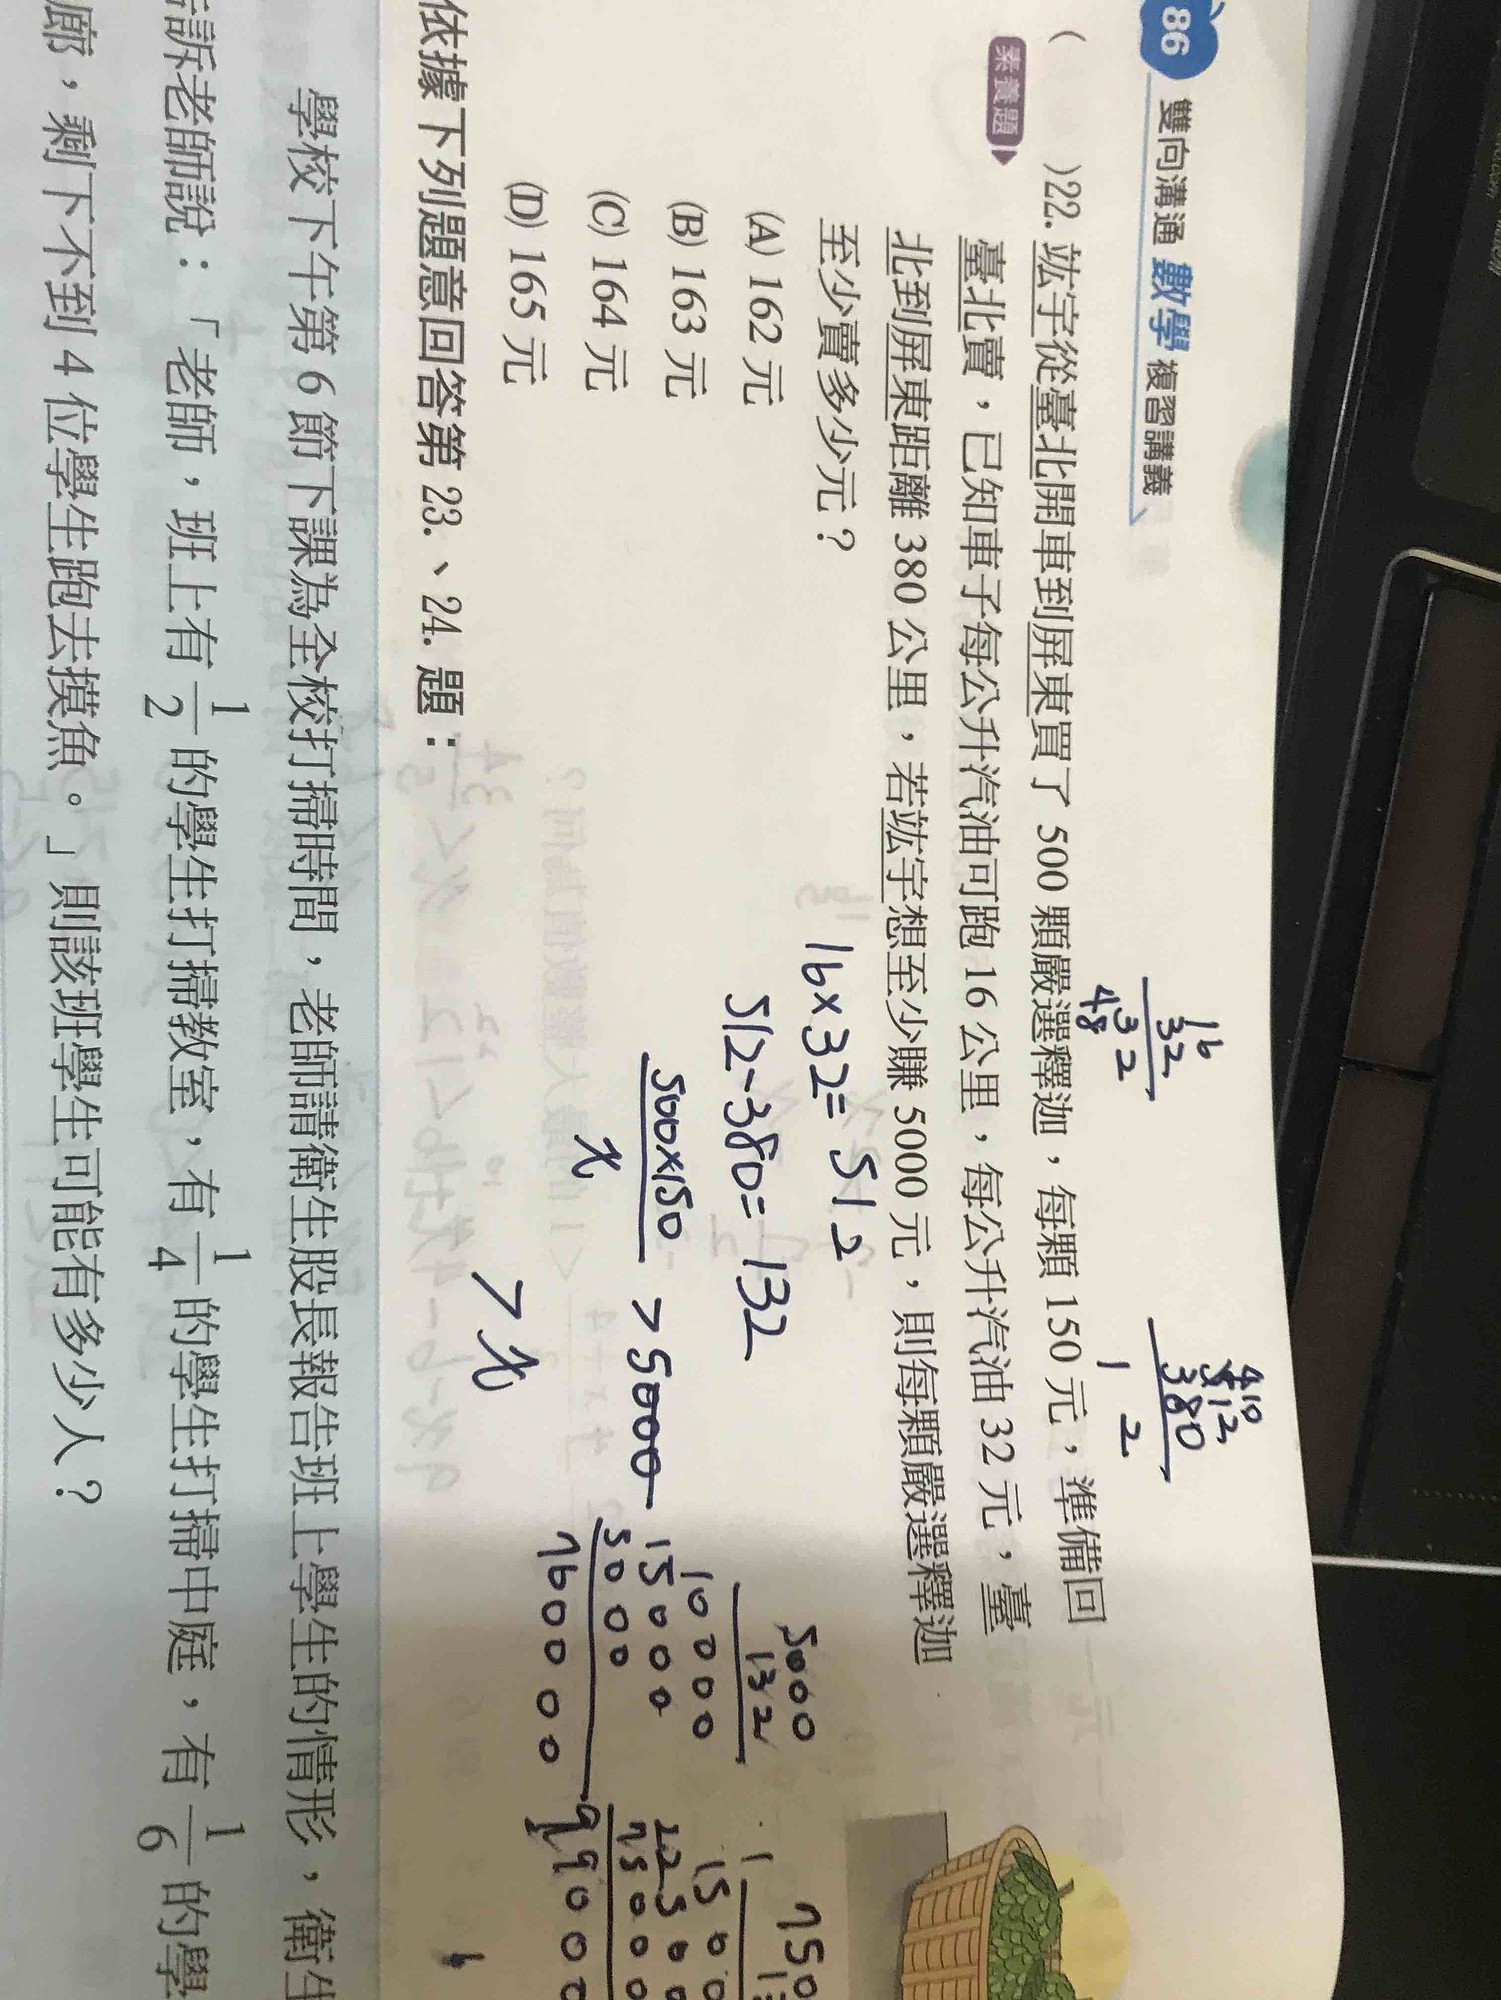 86 雙向溝通 數學 複習講義
(　　)22. 竑宇從臺北開車到屏東買了 500 顆嚴選釋迦，每顆 150 元，準備回
素養題
臺北賣，已知車子每公升汽油可跑 16 公里，每公升汽油 32 元，臺
北到屏東距離 380 公里，若竑宇想至少賺 5000 元，則每顆嚴選釋迦
至少賣多少元？
(A) 162 元
(B) 163 元
(C) 164 元
(D) 165 元
16
32
32
48
410
512
380
1 2
16×32=512
512-380=132
500×150
x
>5000
>x
5000
132
10000
15000
5000
750
1500
依據下列題意回答第 23.、24. 題：
學校下午第 6 節下課為全校打掃時間，老師請衛生股長報告班上學生的情形，衛生
訴老師說：「老師，班上有 1/2 的學生打掃教室，有 1/4 的學生打掃中庭，有 1/6 的學
廊，剩下不到 4 位學生跑去摸魚。」則該班學生可能有多少人？